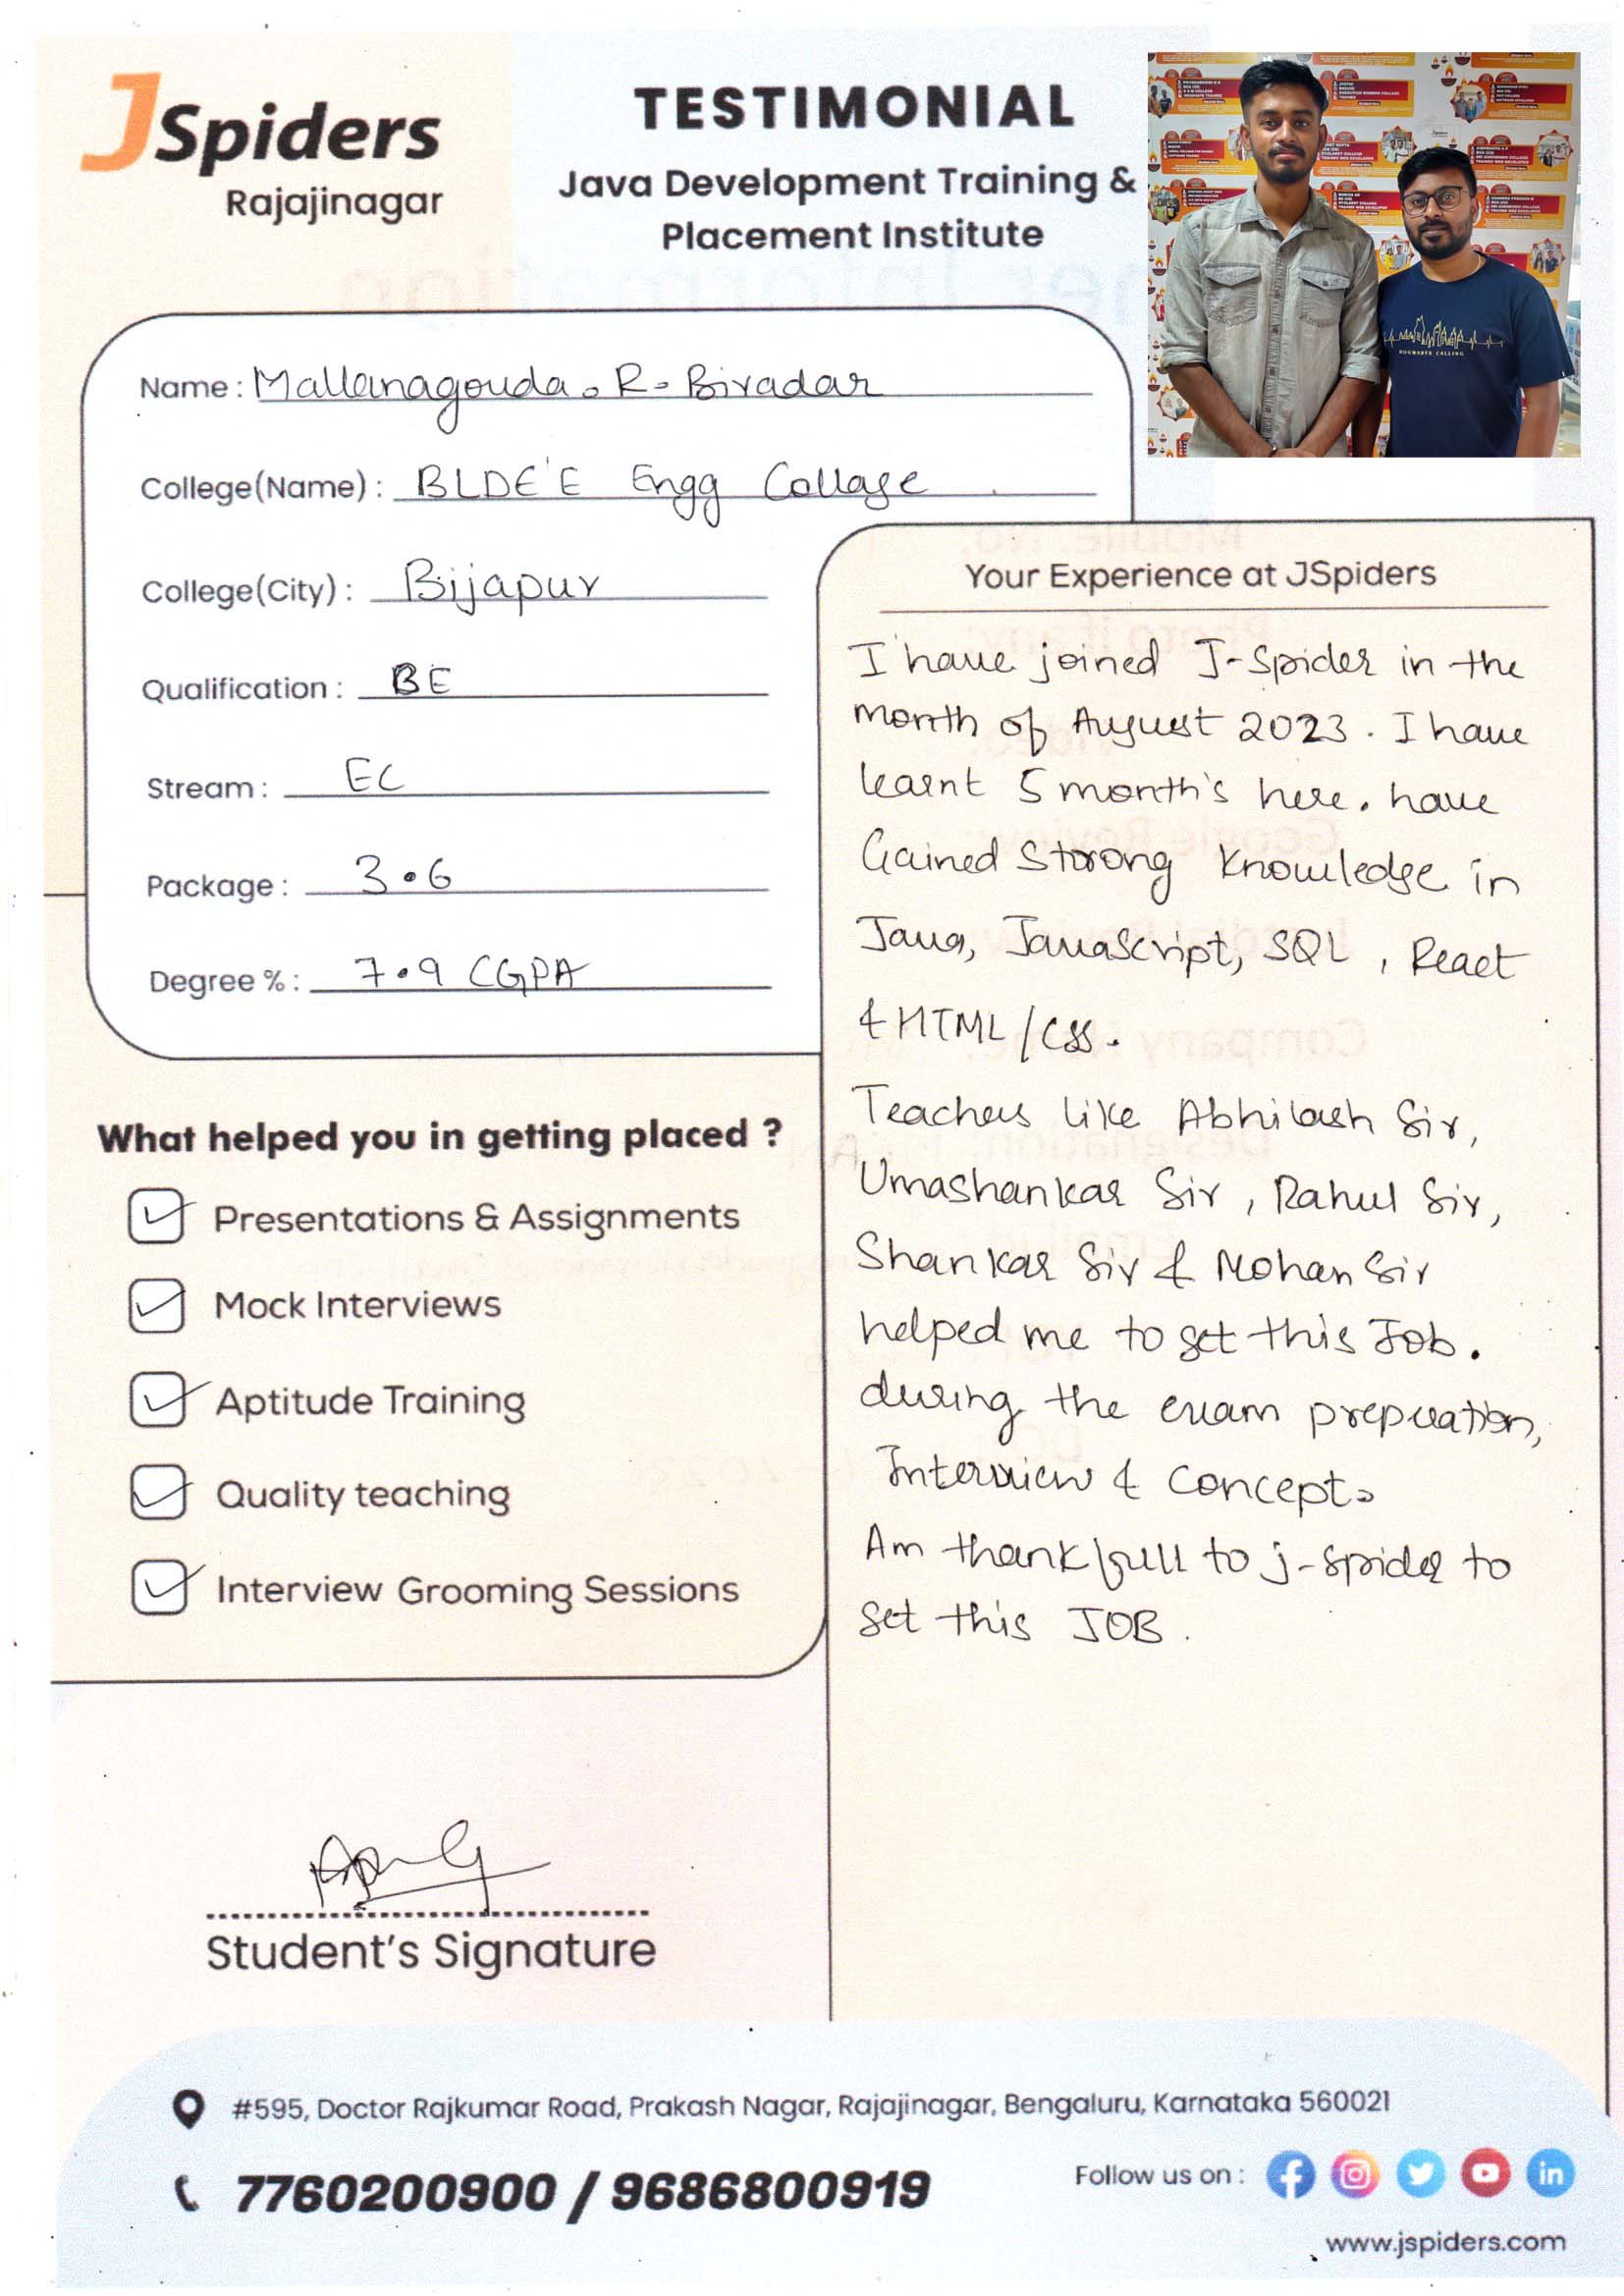 JSpiders
Rajajinagar
TESTIMONIAL
Java Development Training &
Placement Institute
HOGWARTS CALLING
Name : Mallanagouda. R. Biradar
College(Name) : BLDE'E Engg Collage
College(City) : Bijapur
Qualification : BE
Stream : EC
Package : 3.6
Degree % : 7.9 CGPA
What helped you in getting placed ?
Presentations & Assignments
Mock Interviews
Aptitude Training
Quality teaching
Interview Grooming Sessions
Student's Signature
Your Experience at JSpiders
I have joined J-Spider in the
month of August 2023. I have
learnt 5 month's here. have
Gained Strong Knowledge in
Java, JavaScript, SQL, React
& HTML/CSS.
Teachers like Abhilash Sir,
Umashankar Sir, Rahul Sir,
Shankar Sir & Mohan Sir
helped me to get this Job.
during the exam prepration,
Interview & Concept.
Am thankfull to j-spider to
get this JOB.
#595, Doctor Rajkumar Road, Prakash Nagar, Rajajinagar, Bengaluru, Karnataka 560021
7760200900 / 9686800919
Follow us on :
www.jspiders.com